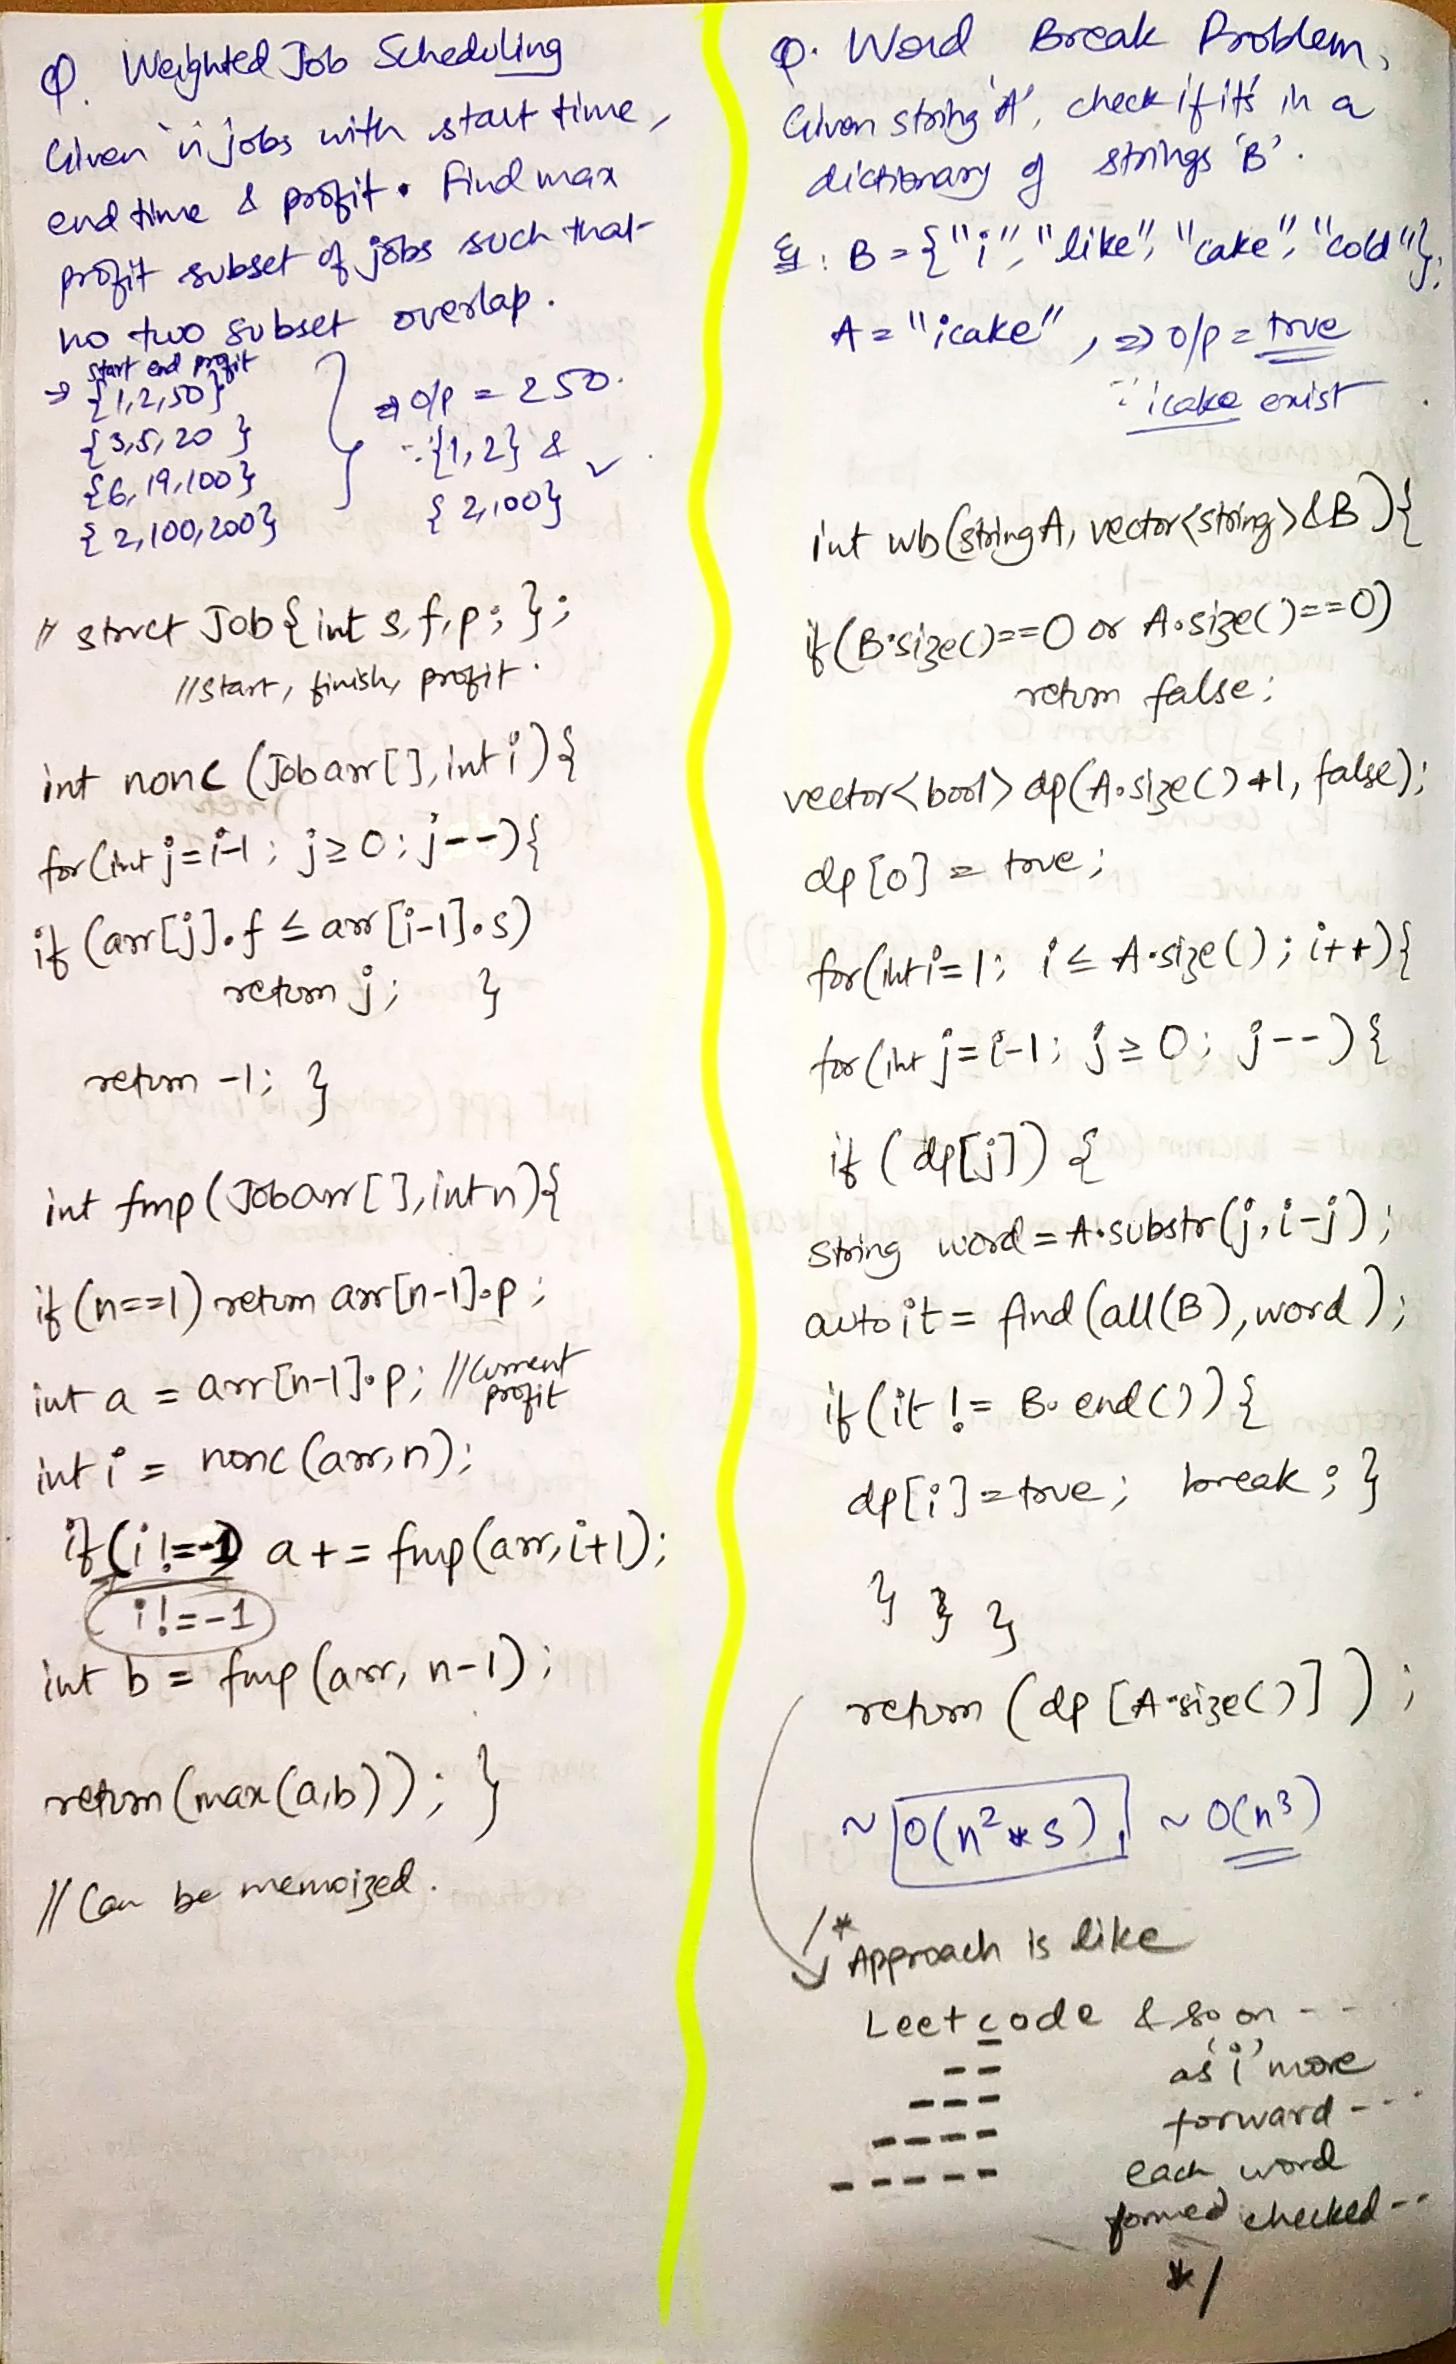 Q. Weighted Job Scheduling
Given 'n' jobs with start time,
end time & profit. Find max
profit subset of jobs such that
no two subset overlap.
start end profit
⇒ {1,2,50}
{3,5,20}
{6,19,100}
{2,100,200}
⇒ o/p = 250.
∵ {1,2} &
{2,100} ✓
// struct Job { int s,f,p; };
// Start, finish, profit.
int nonc (Job arr[], int i){
for(int j=i-1; j≥0; j--){
if (arr[j].f ≤ arr[i-1].s)
return j; }
return -1; }
int fmp (Job arr[], int n){
if (n==1) return arr[n-1].p;
int a = arr[n-1].p; // Current profit
int i = nonc (arr,n);
if (i!=-1) a += fmp(arr,i+1);
i!=-1
int b = fmp (arr, n-1);
return (max(a,b)); }
// Can be memoized.
Q. Word Break Problem,
Given string 'A', check if it's in a
dictionary of strings 'B'.
Eg: B = {"i", "like", "cake", "cold"};
A = "icake", ⇒ o/p = true
∵ icake exist
int wb (string A, vector<string>&B){
if (B.size()==0 or A.size()==0)
return false;
vector<bool> dp(A.size()+1, false);
dp[0] = true;
for(int i=1; i≤A.size(); i++){
for(int j=i-1; j≥0; j--){
if (dp[j]) {
string word = A.substr(j,i-j);
auto it = find(all(B),word);
if (it != B.end()){
dp[i]=true; break; }
} } }
return (dp[A.size()]);
~ O(n²*s), ~ O(n³)
/* Approach is like
Leetcode & so on ---
as 'i' move
forward ---
each word
formed checked --
*/